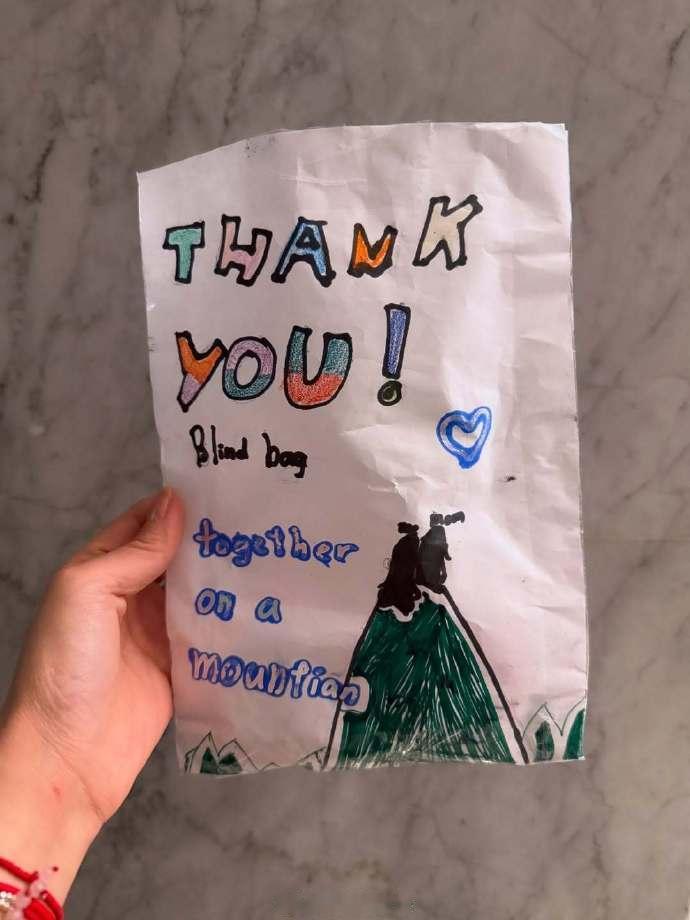 THANK
YOU!
Blind bag
me mom
together
on a
mountian